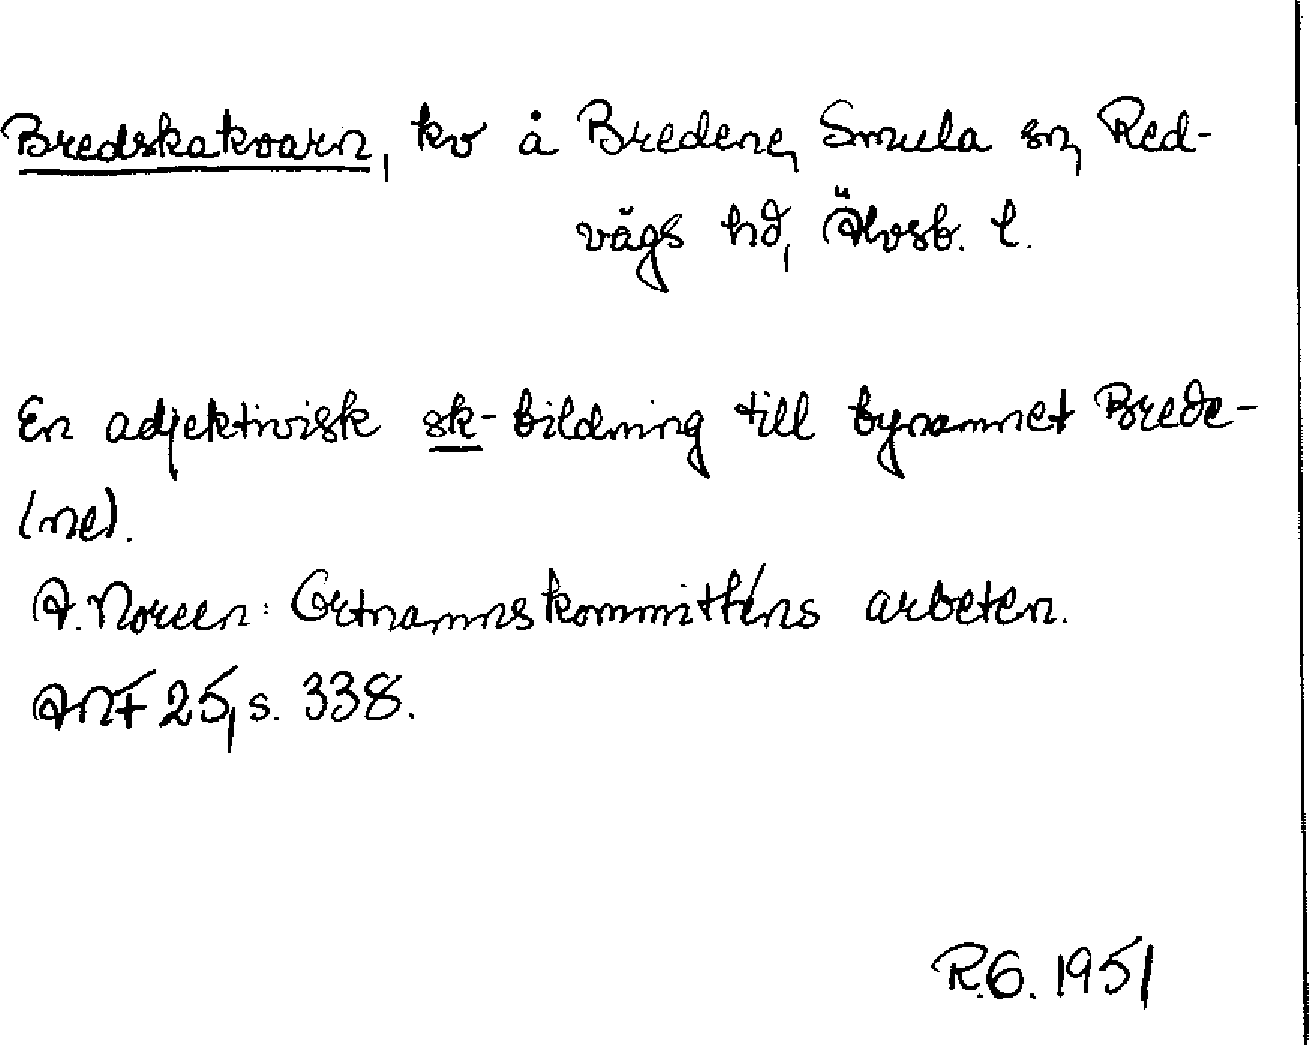 Bredskakvarn, kv å Bredene, Smula sn, Red-
vägs hd, Älvsb. l.
En adjektivisk sk-bildning till bynamnet Brede-
(ne).
A. Noreen: Ortnamnskommitténs arbeten.
ANF 25, s. 338.
R.G. 1951